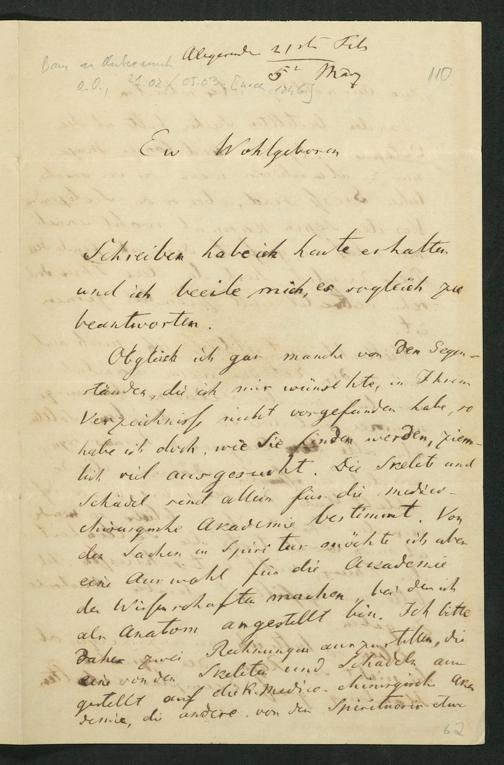 Abgesandt 21ste Feb
5t März
110
Ew Wohlgeboren
Schreiben habe ich heute erhalten
und ich beeile mich, es sogleich zu
beantworten.
Obgleich ich gar manche von den Gegen-
ständen, die ich mir wünschte, in Ihrem
Verzeichniss nicht vorgefunden habe, so
habe ich doch, wie Sie finden werden, ziem-
lich viel ausgesucht. Die Skelete und
Schädel sind allein für die medico-
chirurgische Akademie bestimmt. Von
den Sachen in Spiritus möcht ich aber
eine Auswahl für die Akademie
der Wissenschaften machen, bei der ich
als Anatom angestellt bin. Ich bitte
daher zwei Rechnungen auszustellen, die
eine von den Skeleten und Schädeln aus
gestellt auf die K. medico-chirurgische Aka
demie, die andere von den Spirituosis
62